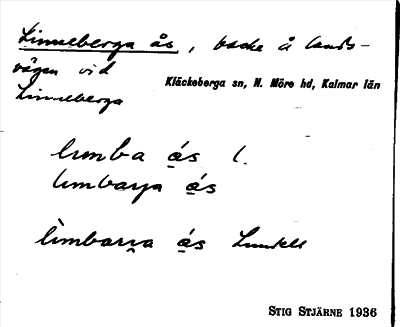 Linneberga ås, backe å lands-
vägen vid
Kläckeberga sn, N. Möre hd, Kalmar län
Linneberga
limba ås l.
limbarja ås
lìmbarɲa ås Lundell
STIG STJÄRNE 1936